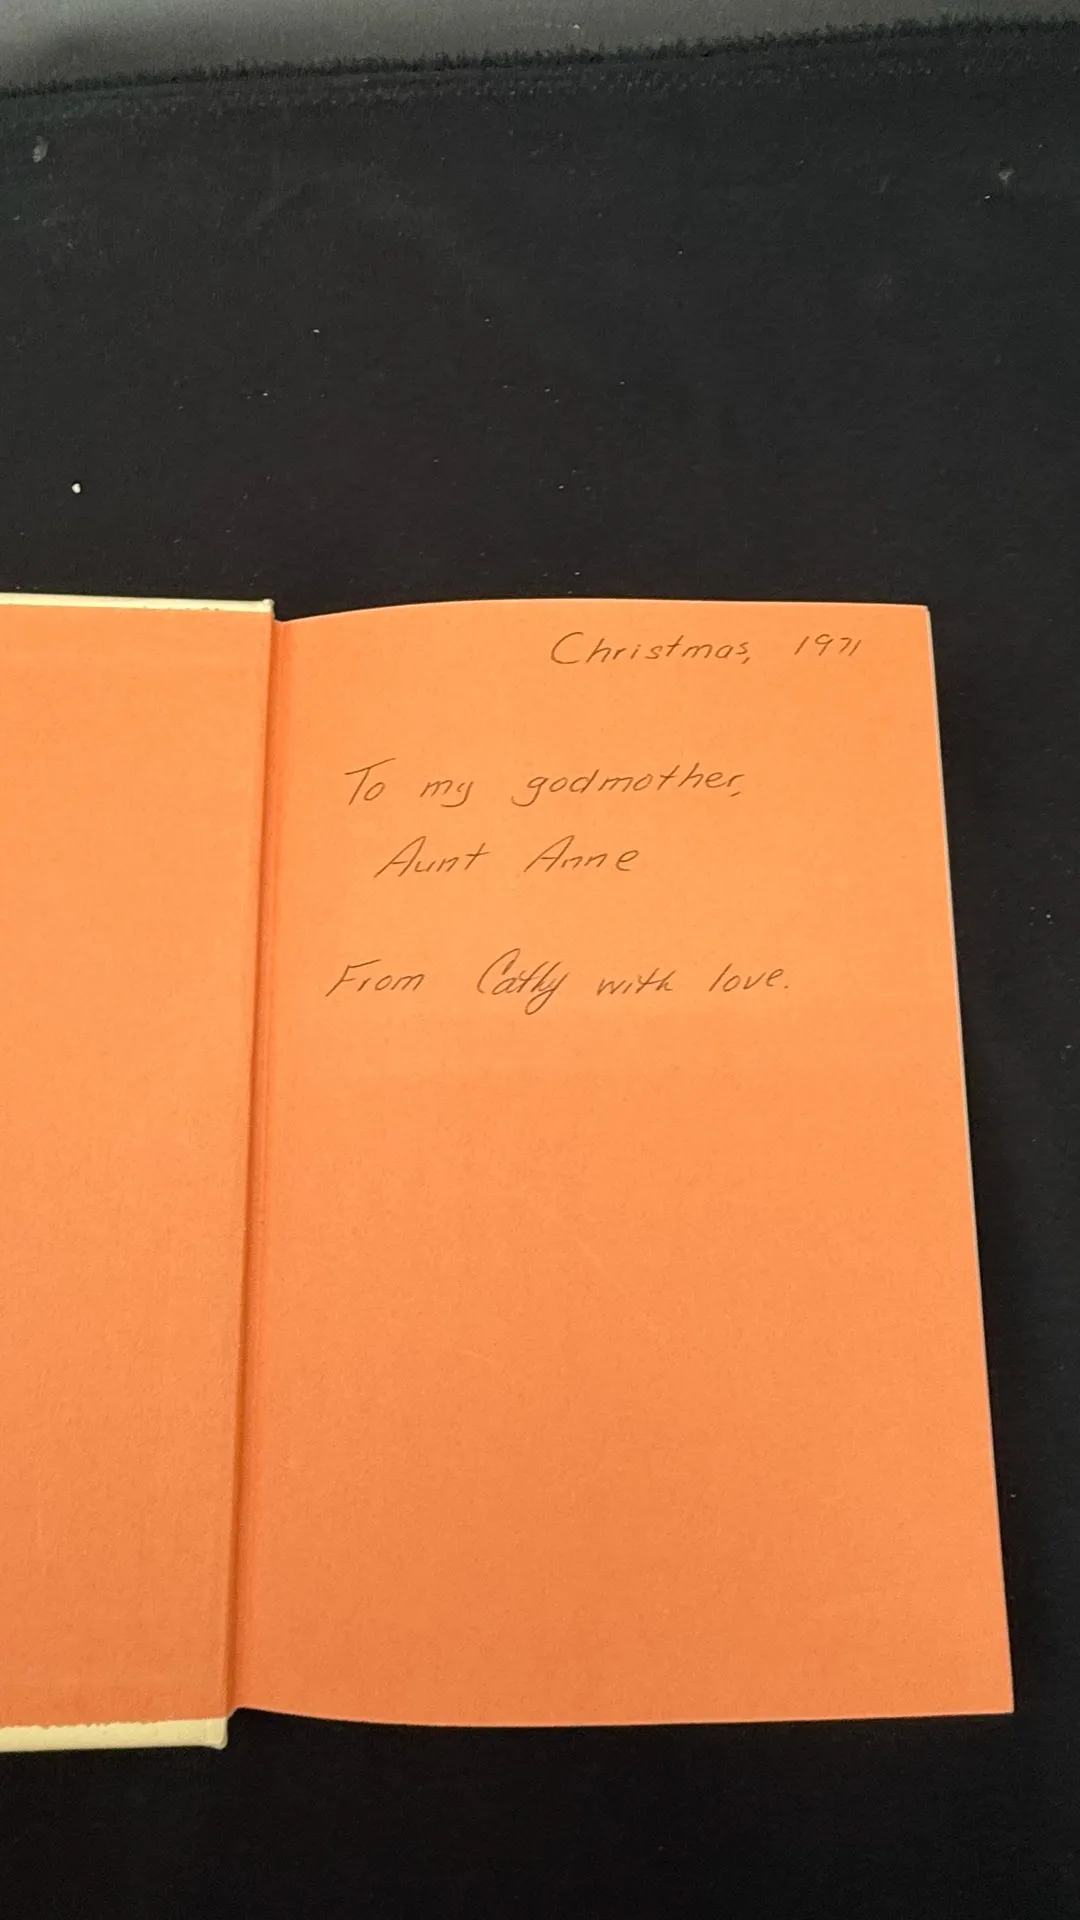 Christmas, 1971
To my godmother,
Aunt Anne
From Cathy with love.